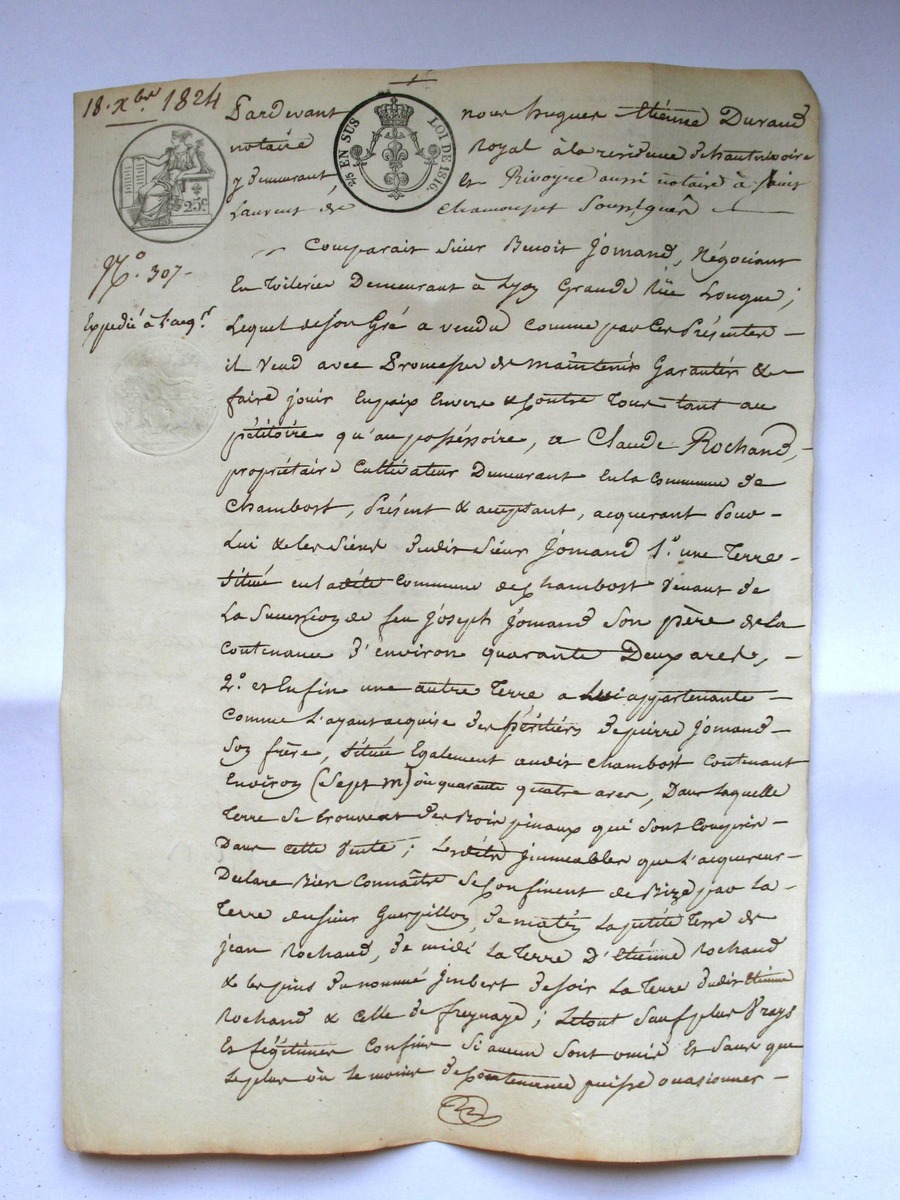 18. Xbre 1824
Pardevant nous hugues Etiénne Durand
notaire Royal à la residence de hauterivoire
y demeurant, Et Rivoyre aussi notaire à saint
Laurent de Chamousset Soussignés
2/5 EN SUS LOI DE 1816.
25c
No. 307.
Expedié à l'acqr.
Comparait sieur Benoit Jomand, Négociant
En toilerie Demeurant à Lyon Grande Rüe Longue;
Lequel de son Gré a vendu Comme par Ces Présentes
il Vend avec Promesse de maintenir Garantir &
faire jouir En paix Envers & Contre Tous tant au
pétitoire qu'au posséssoire, a Claude Rochand,
propriétaire Cultivateur Demeurant En la Commune de
Chambost, Présent & acceptant, acquerant Pour
Lui & les Siens dudit Sieur Jomand 1o. une Terre
située en ladite Commune de Chambost venant de
La Succession de feu Joseph Jomand son père de La
Contenance d'environ quarante Deux ares,
2o. et Enfin une autre Terre a Lui appartenante
Comme L'ayant acquise des héritiers de pierre Jomand
son frère, située Egalement audit Chambost Contenant
Environ (sept m) ou quarante quatre ares, Dans Laquelle
Terre se trouvent des Bois pinaux qui sont Compris
Dans cette Vente; Lesdits Immeubles que L'acquereur
Declare Bien Connaître se Confinent de Bize par La
Terre du sieur Guerpillon, de matin La petite Terre de
jean Rochand, de midi La Terre D'Etiénne Rochand
& les pins du nommé Jmbert de soir La Terre dudit Etienne
Rochand & Celle de freynaye; Letout Sauf plus Vrays
Et Légitimes Confins si aucun sont omis Et Sans que
Le plus ou Le moins de Contenance puisse ocasionner